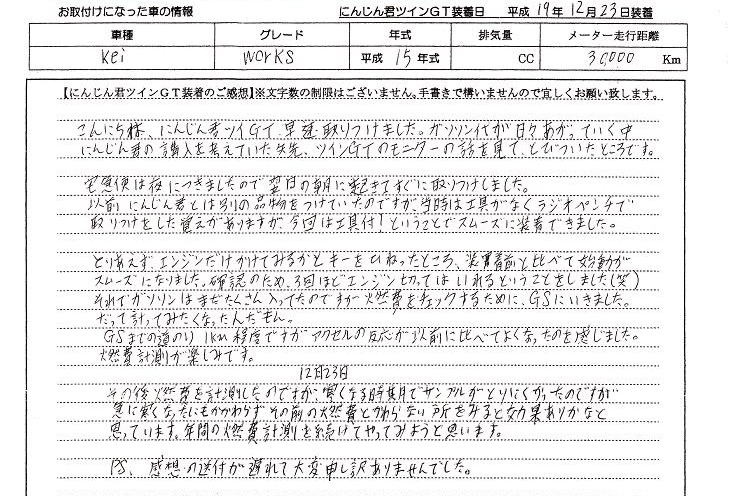 お取付けになった車の情報 にんじん君ツインGT装着日 平成 19年12月23日装着
車種 グレード 年式 排気量 メーター走行距離
Kei works 平成 15年式 CC 30,000 Km
【にんじん君ツインGT装着のご感想】※文字数の制限はございません。手書きで構いませんので宜しくお願い致します。
こんにち様、にんじん君ツインGT、早速取りつけました。ガソリン代が日々あがっていく中
にんじん君の購入を考えていた矢先、ツインGTのモニターの話を見て、とびついたところです。
宅急便は夜につきましたので翌日の朝に起きてすぐに取りつけしました。
以前にんじん君とは別の品物をつけていたのですが当時は工具がなくラジオペンチで
取りつけをした覚えがありますが、今回は工具付!ということでスムーズに装着できました。
とりあえず、エンジンだけかけてみるかとキーをひねったところ、装着前と比べて始動が
スムーズになりました。確認のため、3回ほどエンジン切ってはいれるということをしました(笑)
それでガソリンはまだたくさん入ってたのですが燃費をチェックするために、GSにいきました。
だって計ってみたくなったんだもん。
GSまでの道のり1km程度ですがアクセルの反応が以前に比べてよくなったのを感じました。
燃費計測が楽しみです。
12月23日
その後燃費を計測したのですが、寒くなる時期でサンプルがとりにくかったのですが
急に寒くなったにもかかわらずその前の燃費とかわらない所をみると効果ありかなと
思っています。年間の燃費計測を続けてやってみようと思います。
PS、感想の送付が遅れて大変申し訳ありませんでした。